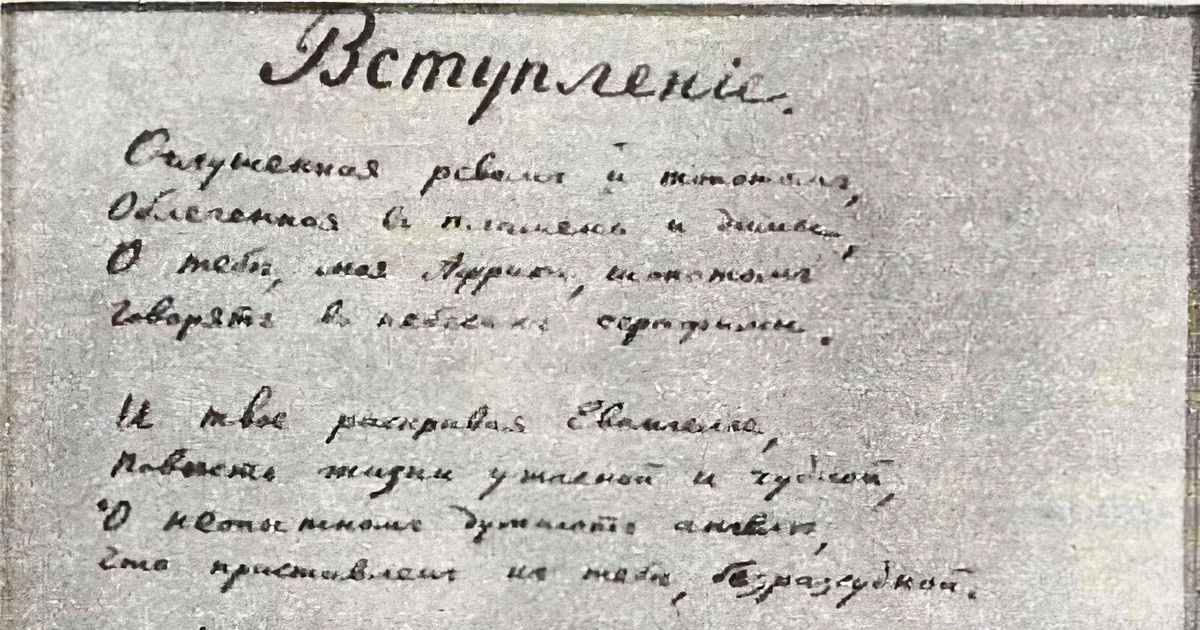 Вступленіе.
Оглушенная ревомъ и топотомъ,
Облеченная въ пламень и дымы,
О тебѣ, моя Африка, шопотомъ
Говорятъ въ небесахъ серафимы.
И твое раскрывая Евангелье,
Повѣсть жизни ужасной и чудной,
О неопытномъ думаютъ ангелѣ,
Что приставленъ къ тебѣ, безразсудной.